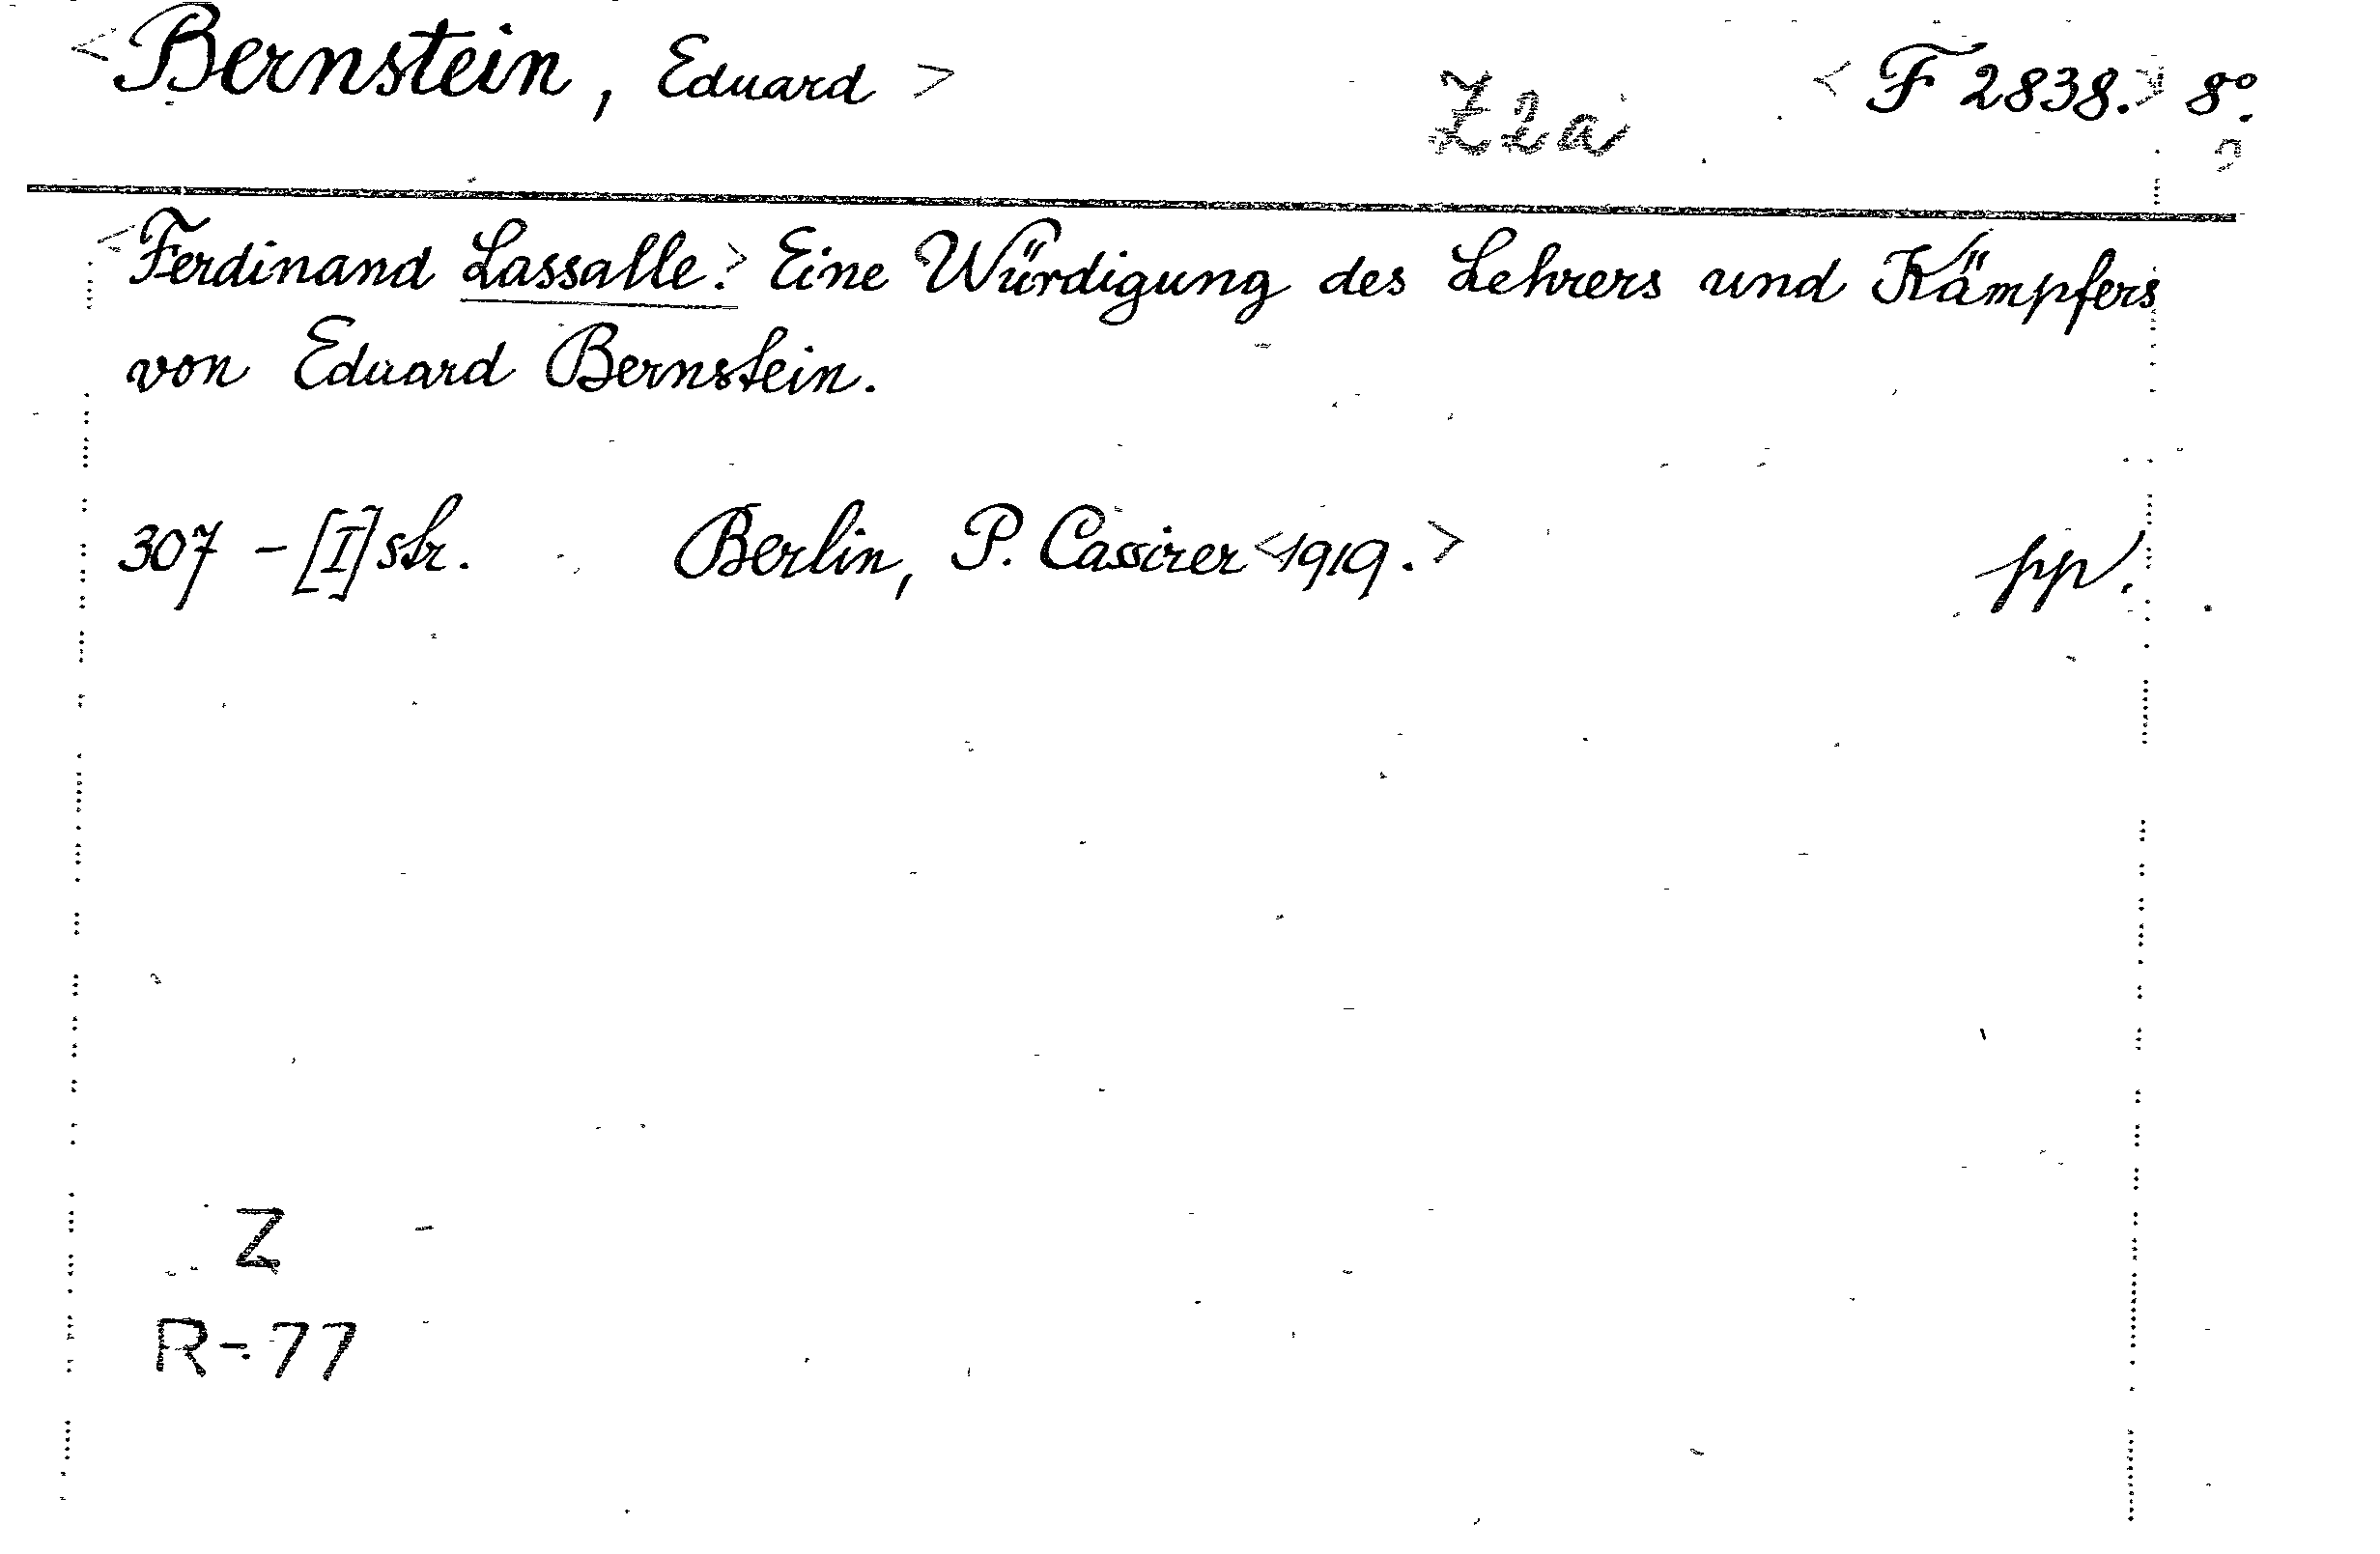 <Bernstein, Eduard> Z2a <F 2838.> 8°.
<Ferdinand Lassalle.> Eine Würdigung des Lehrers und Kämpfers
von Eduard Bernstein.
307 - [I] str. Berlin, P. Cassirer <1919.> pp.
Z
R-77